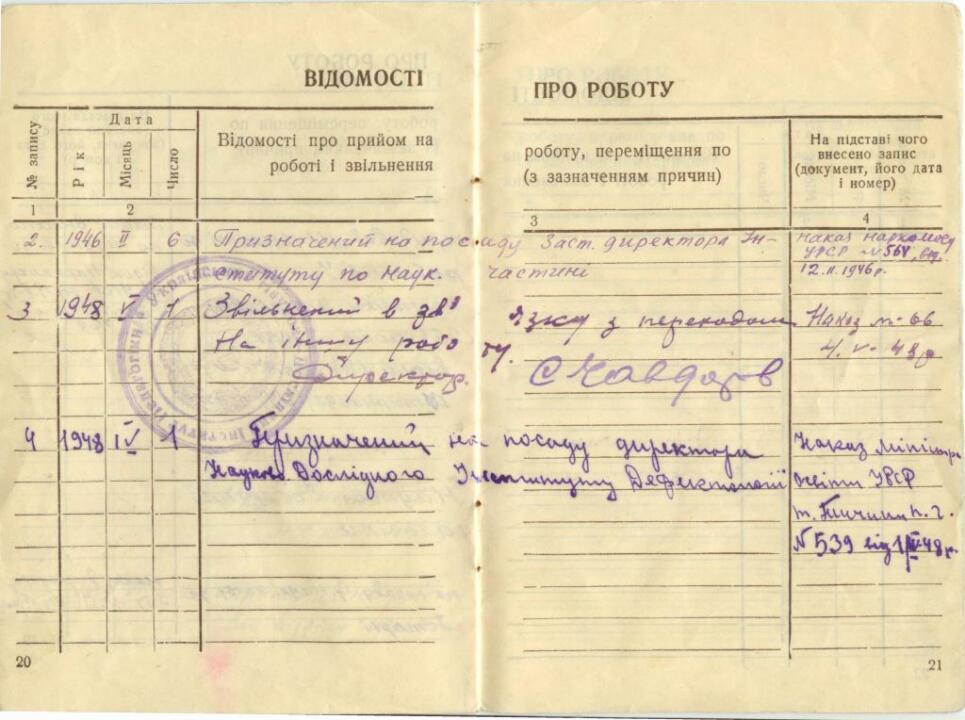 ВІДОМОСТІ ПРО РОБОТУ
№ запису
Дата
Рік
Місяць
Число
Відомості про прийом на роботу, переміщення по
роботі і звільнення (з зазначенням причин)
На підставі чого
внесено запис
(документ, його дата
і номер)
1 2 3 4
2. 1946 II 6 Призначений на посаду Заст. директора Ін- Наказ Наркомосу
ституту по наук. частині УРСР №564 від
12.II.1946р.
3 1948 V 1 Звільнений в зв'язку з переходом Наказ №66
На іншу роботу. 4.V-48р
Директор. СЧавдаров
4 1948 IV 1 Призначений на посаду директора Наказ Міністра
Науково Дослідного Інституту Дефектології Освіти УРСР
т. Тичини П.Г.
№539 від 48р.
20
21